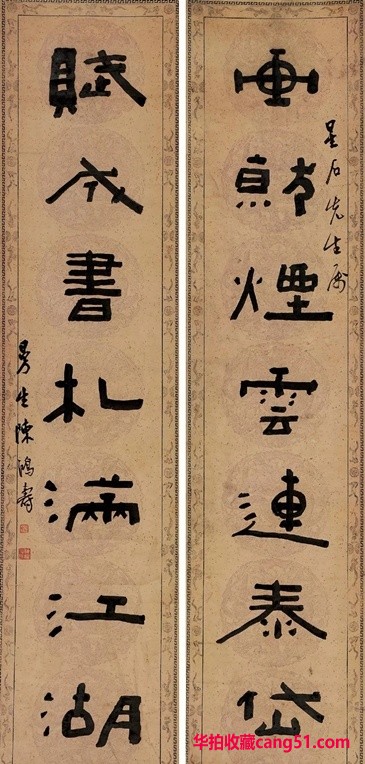 星石先生属
画就煙雲連泰岱
賦成書札滿江湖
曼生陳鴻壽
华拍收藏cang51.com